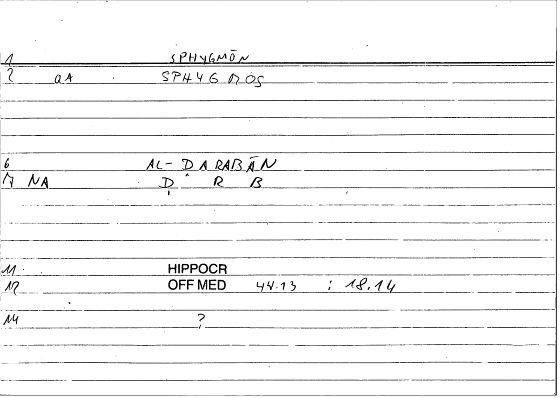 1 SPHYGMŌN
2 aA SPHYGMOS
6 AL-ḌARABĀN
7 NA Ḍ R B
11 HIPPOCR
12 OFF MED 44.13 : 18.14
14 ?